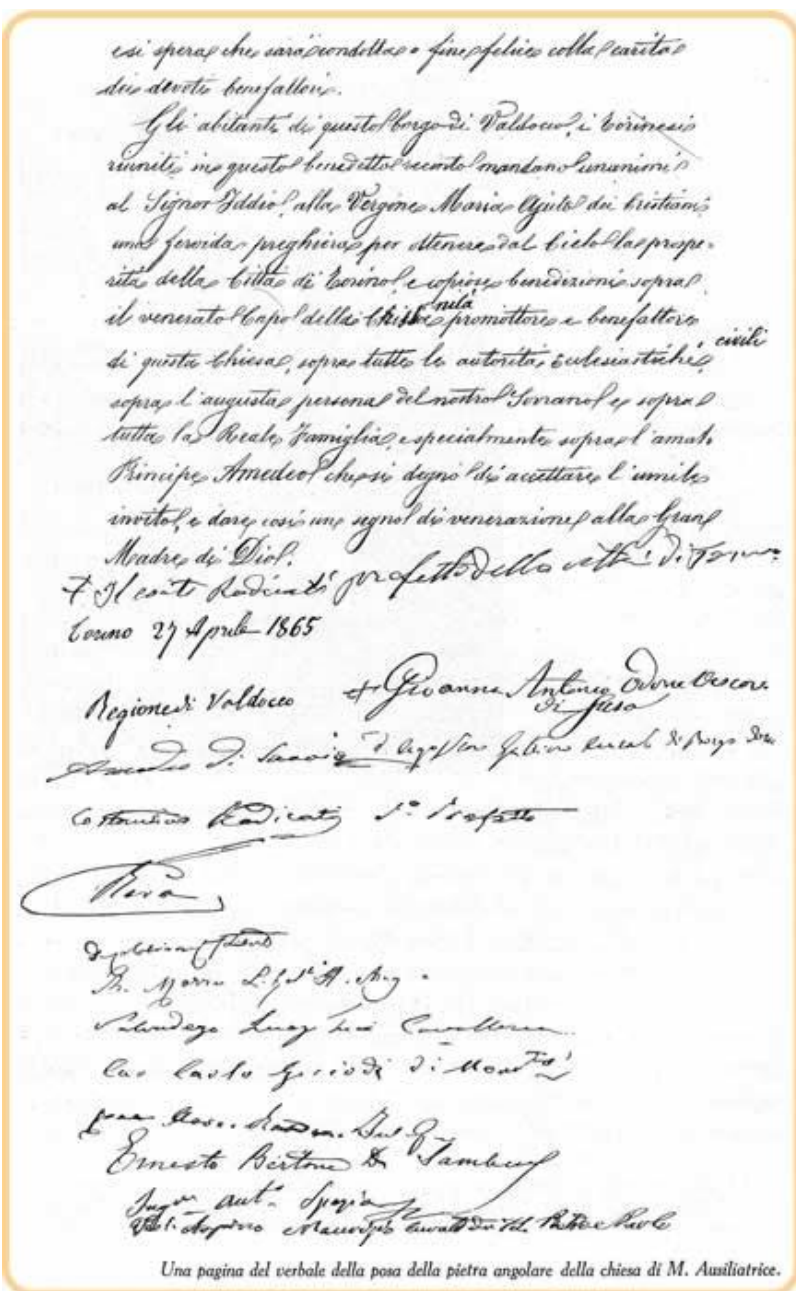 e si spera che sarà condotta a fine felice colla carità
dei devoti benefattori.
Gli abitanti di questo borgo di Valdocco, i Torinesi
riuniti in questo benedetto recinto mandano unanimi
al Signor Iddio, alla Vergine Maria Ajuto dei Cristiani
una fervida preghiera per ottenere dal Cielo la prospe-
rità della Città di Torino, e copiose benedizioni sopra
il venerato Capo della Cristianità promottore e benefattore
di questa Chiesa, sopra tutte le autorità Eclesiastiche, civili
sopra l'augusta persona del nostro Sovrano e sopra
tutta la Reale Famiglia, e specialmente sopra l'amato
Principe Amedeo che si degnò di accettare l'umile
invito, e dare così un segno di venerazione alla Gran
Madre di Dio.
Il conte Radicati prefetto della città di Torino
Torino 27 Aprile 1865
Regione di Valdocco + Giovanni Antonio Odone Vescovo
di Susa
Amedeo di Savoia d. Agostino curato di Borgo Dora
Costantino Radicati Prefetto
Rora
Morra
Luigi Cavalleria
Cav Carlo di
Ernesto Bertone di Sambuy
Ant. Spezia
Maurizio curato dei SS. Pietro e Paolo
Una pagina del verbale della posa della pietra angolare della chiesa di M. Ausiliatrice.